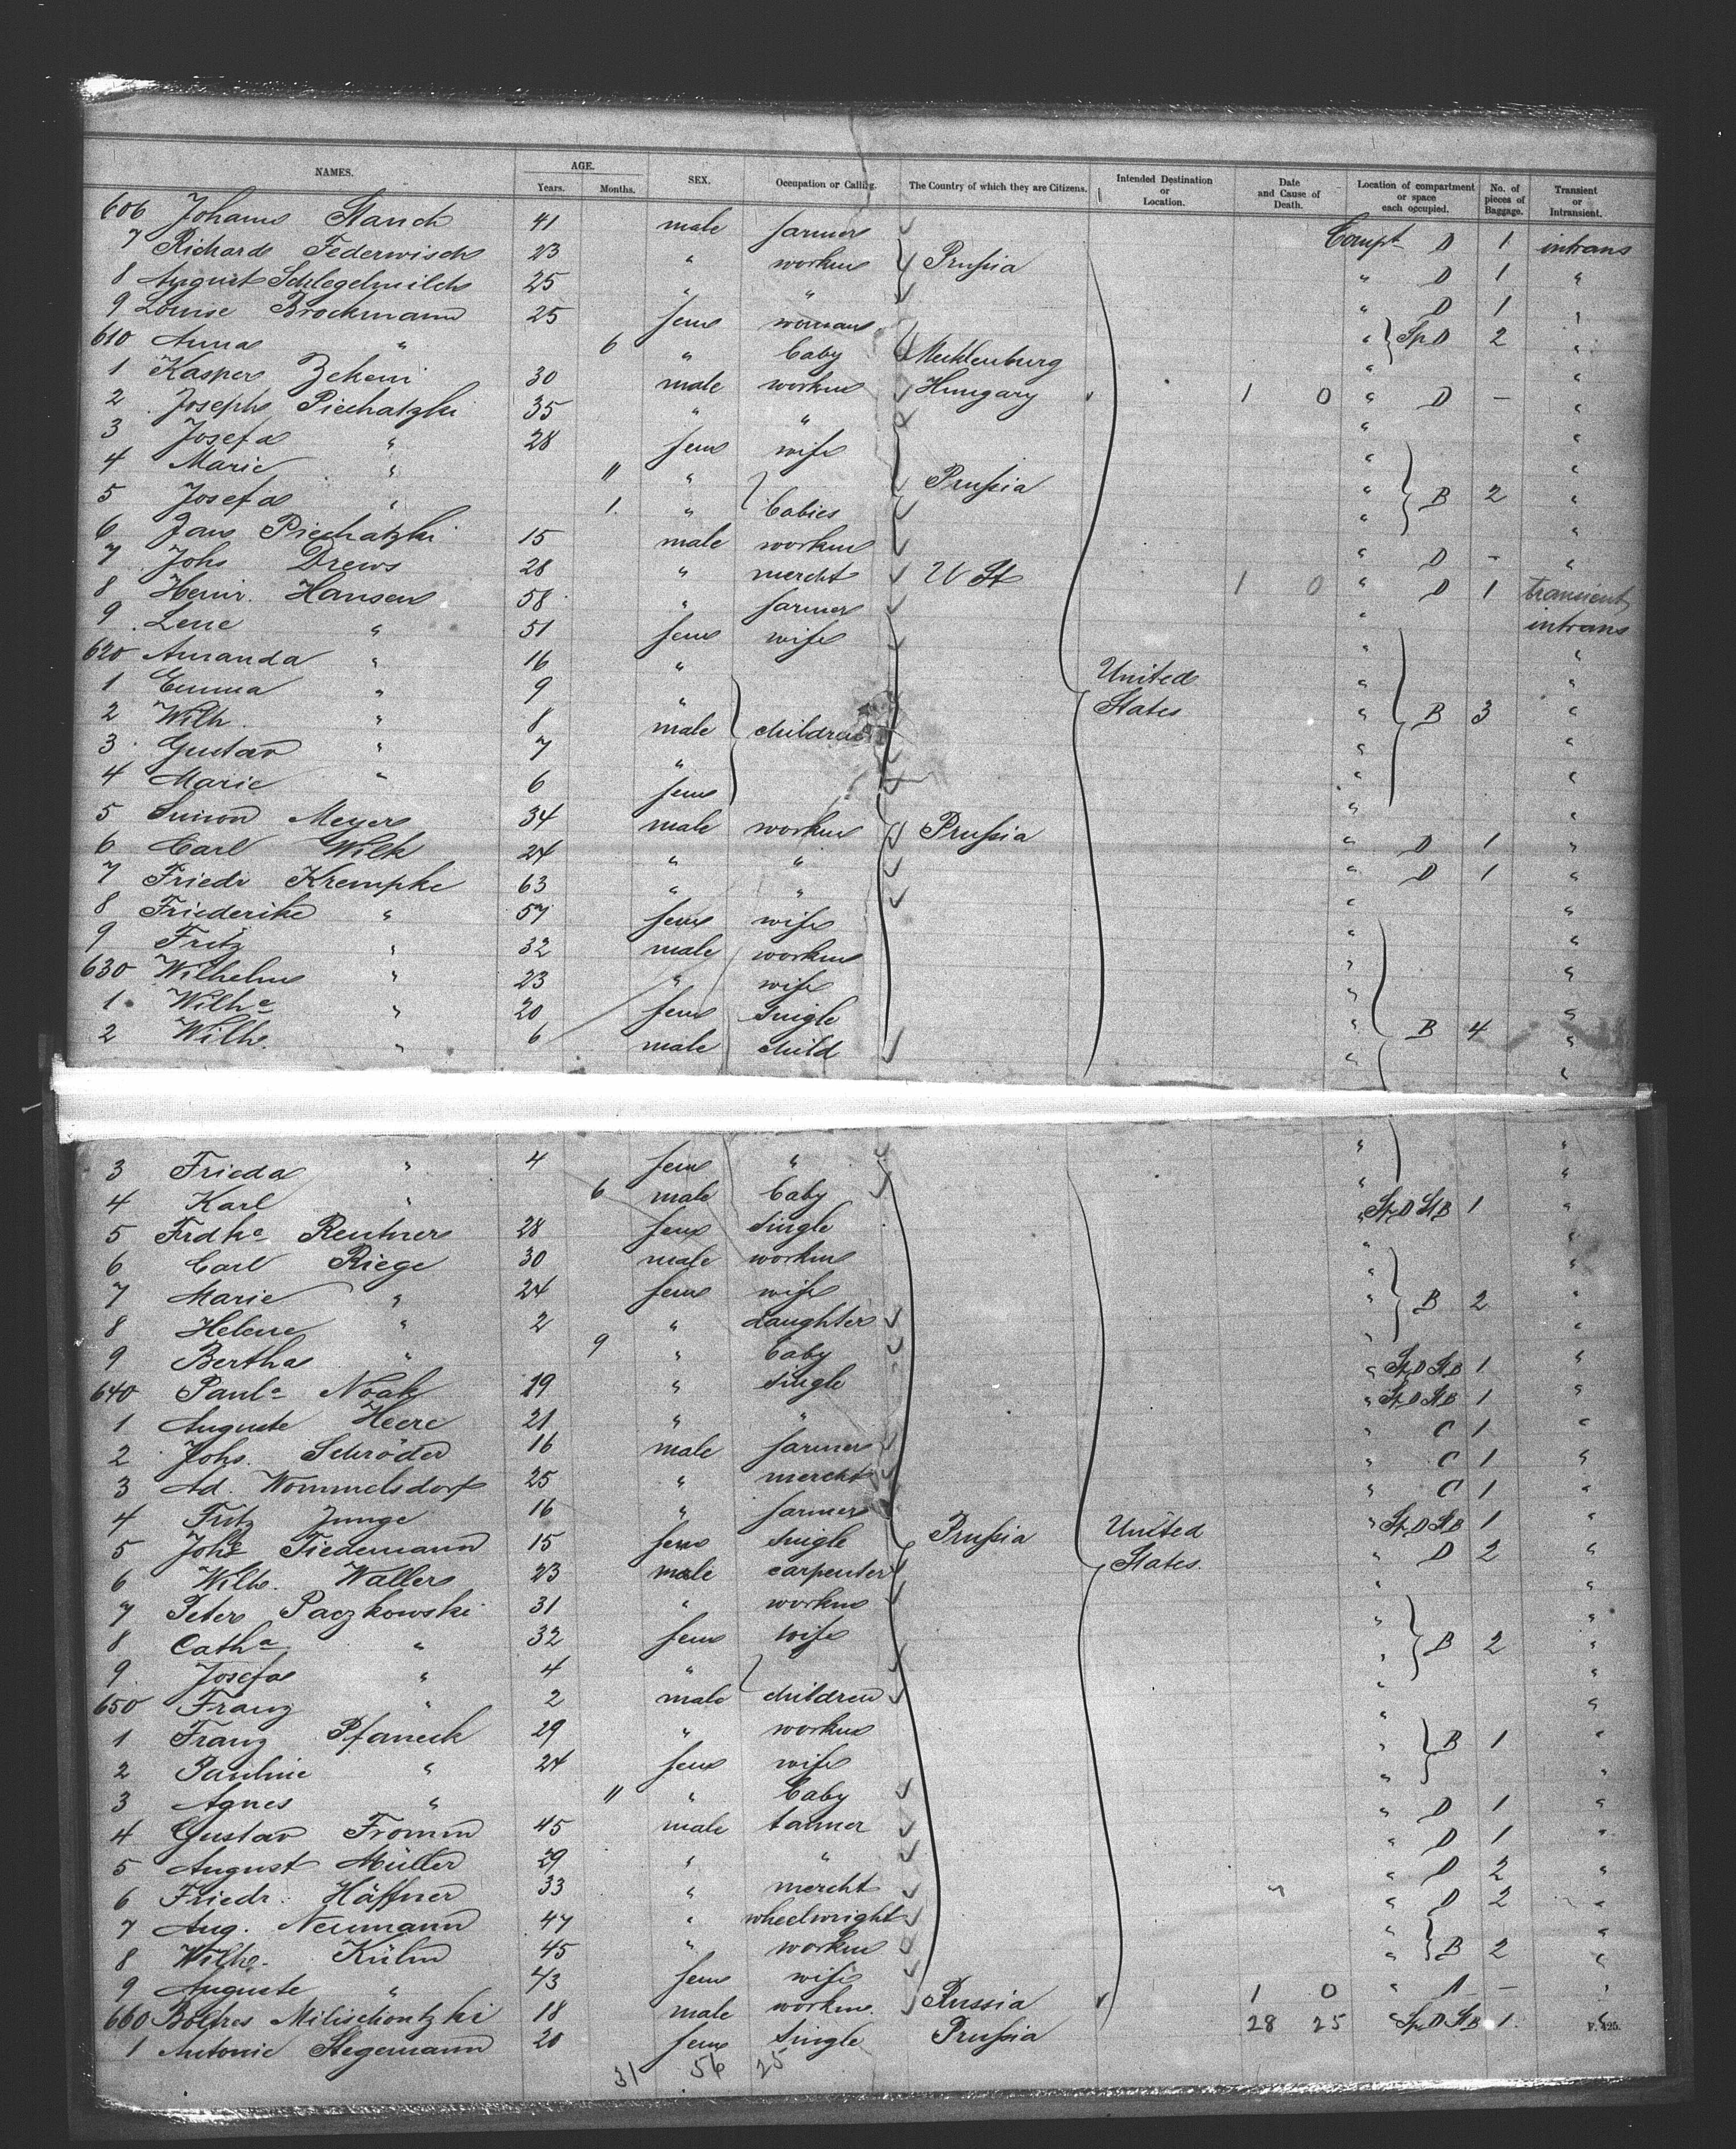 NAMES. AGE. Years. Months. SEX. Occupation or Calling. The Country of which they are Citizens. Intended Destination or Location. Date and Cause of Death. Location of compartment or space each occupied. No. of pieces of Baggage. Transient or Intransient.
606 Johann Stauch 41 male farmer Compt D 1 intrans
7 Richard Federwisch 23 " worker Prussia " D 1 "
8 August Schlegelmilch 25 " " " D 1 "
9 Louise Brockmann 25 fem woman " Sp. D 2 "
610 Anna " 6 " baby Mecklenburg " "
1 Kasper Zeheni 30 male worker Hungary 1 0 " D - "
2 Joseph Piechatzki 35 " " " "
3 Josefa " 28 fem wife " "
4 Marie " 11 " Prussia " B 2 "
5 Josefa " 1 " babies " "
6 Jan Piechatzki 15 male worker " D - "
7 Johs Drews 28 " mercht U St 1 0 " D 1 transient
8 Heinr. Hansen 58 " farmer " intrans
9 Lene " 51 fem wife " "
620 Amanda " 16 " United " "
1 Emma " 9 " States " B 3 "
2 Wilh. " 8 male children " "
3 Gustav " 7 " " "
4 Marie " 6 fem " "
5 Simon Meyer 34 male worker Prussia " D 1 "
6 Carl Wilk 24 " " " D 1 "
7 Friedr Krempke 63 " " " "
8 Friederike " 57 fem wife " "
9 Fritz " 32 male worker " "
630 Wilhelm " 23 " wife " "
1 Wilhe " 20 fem single " B 4 "
2 Wilh. " 6 male child " "
3 Frieda " 4 fem " " "
4 Karl " 6 male baby " "
5 Frdke Rentner 28 fem single " Sp D St B 1 "
6 Carl Riege 30 male worker " "
7 Marie " 24 fem wife " B 2 "
8 Helene " 2 " daughter " "
9 Bertha " 9 " baby " "
640 Paule Noak 19 " single " Sp D St B 1 "
1 Auguste Heere 21 " " " Sp D St B 1 "
2 Johs. Schröder 16 male farmer " C 1 "
3 Ad. Wommelsdorf 25 " mercht " C 1 "
4 Fritz Junge 16 " farmer " C 1 "
5 Johe Tiedemann 15 fem single Prussia United " Sp D St B 1 "
6 Wilh. Wallers 23 male carpenter States. " D 2 "
7 Peter Paczkowski 31 " worker " "
8 Catha " 32 fem wife " B 2 "
9 Josefa " 4 " " "
650 Franz " 2 male children " "
1 Franz Pfaneck 29 " worker " "
2 Pauline " 24 fem wife " B 1 "
3 Agnes " 11 " baby " "
4 Gustav Fromm 45 male tanner " D 1 "
5 August Müller 29 " " " D 1 "
6 Friedr. Häffner 33 " mercht " D 2 "
7 Aug. Neumann 47 " wheelwright " D 2 "
8 Wilh. Kühn 45 " worker " B 2 "
9 Auguste " 43 fem wife " "
660 18 male worker. Russia 1 0 " -
1 Antonie Stegemann 20 fem single Prussia 28 25 " Sp D St B 1. "
31 56 25
F. 425.